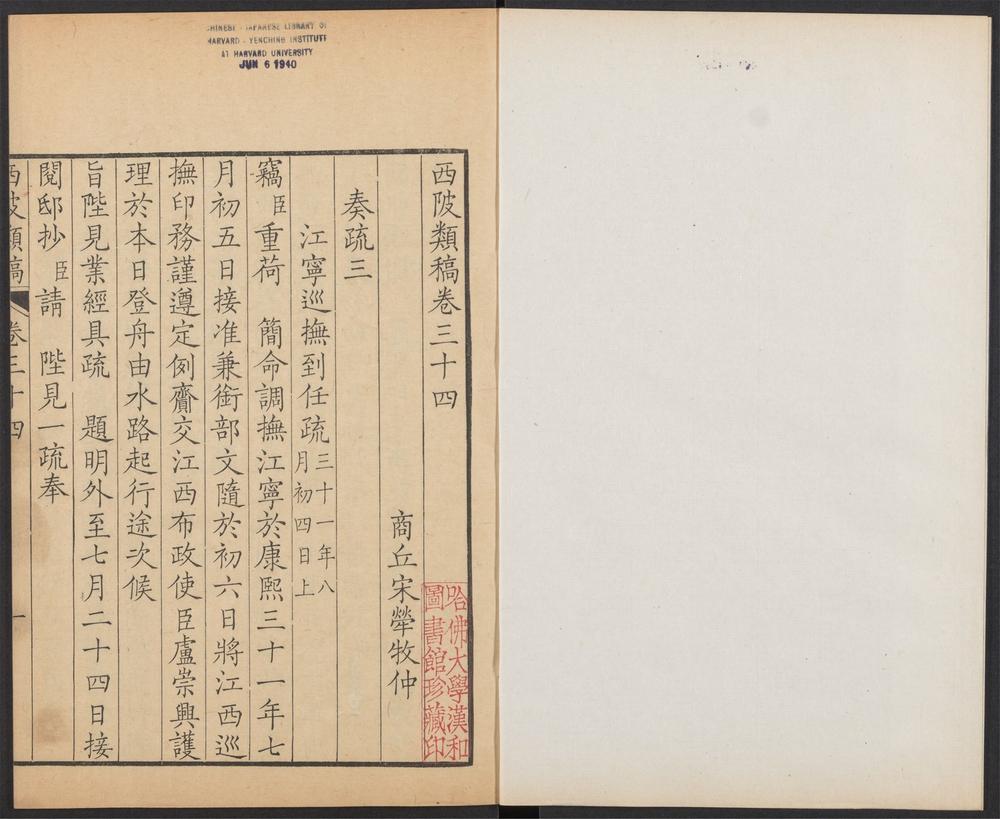 CHINESE - JAPANESE LIBRARY OF
HARVARD - YENCHING INSTITUTE
AT HARVARD UNIVERSITY
JUN 6 1940
西陂類稿卷三十四
商丘宋犖牧仲
奏疏三
江寧巡撫到任疏三十一年八月初四日上
竊臣重荷 簡命調撫江寧於康熙三十一年七
月初五日接准兼銜部文隨於初六日將江西巡
撫印務謹遵定例齎交江西布政使臣盧崇興護
理於本日登舟由水路起行途次候
旨陛見業經具疏 題明外至七月二十四日接
閱邸抄臣請 陛見一疏奉
西陂類稿 卷三十四 一
哈佛大學漢和
圖書館珍藏印